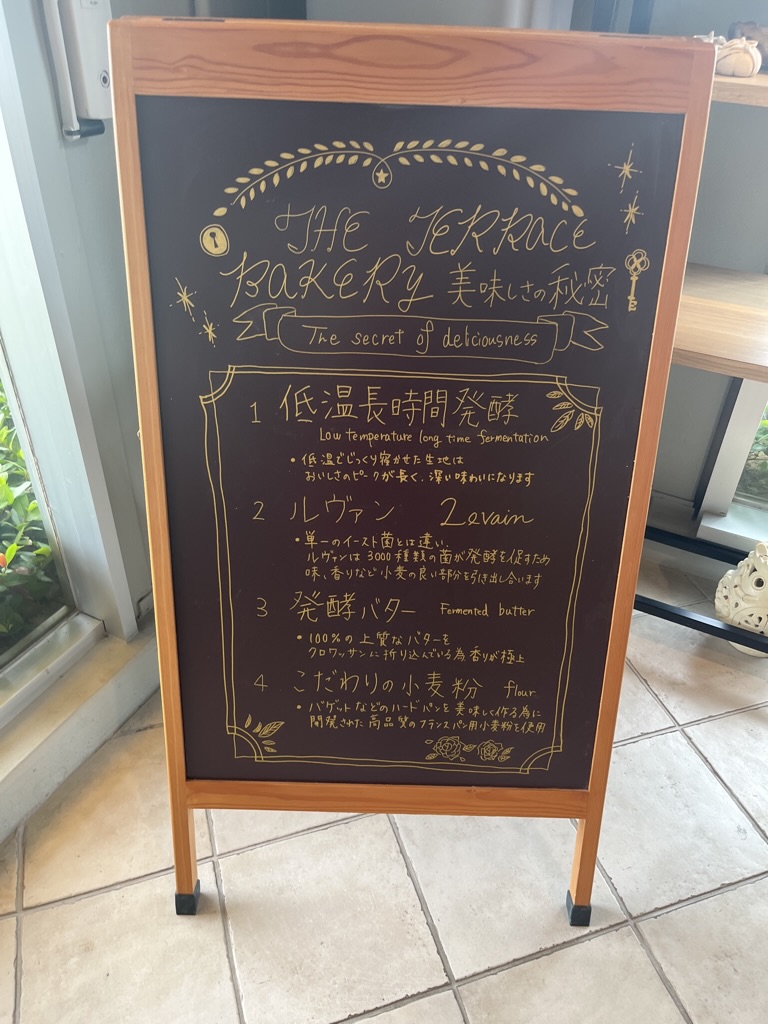 THE TERRACE
BAKERY 美味しさの秘密
The secret of deliciousness
1 低温長時間発酵
Low temperature long time fermentation
・低温でじっくり寝かせた生地は
おいしさのピークが長く、深い味わいになります
2 ルヴァン Levain
・単一のイースト菌とは違い、
ルヴァンは3000種類の菌が発酵を促すため
味、香りなど小麦の良い部分を引き出し合います
3 発酵バター Fermented butter
・100%の上質なバターを
クロワッサンに折り込んでいる為香りが極上
4 こだわりの小麦粉 flour
・バゲットなどのハードパンを美味しく作る為に
開発された高品質のフランスパン用小麦粉を使用